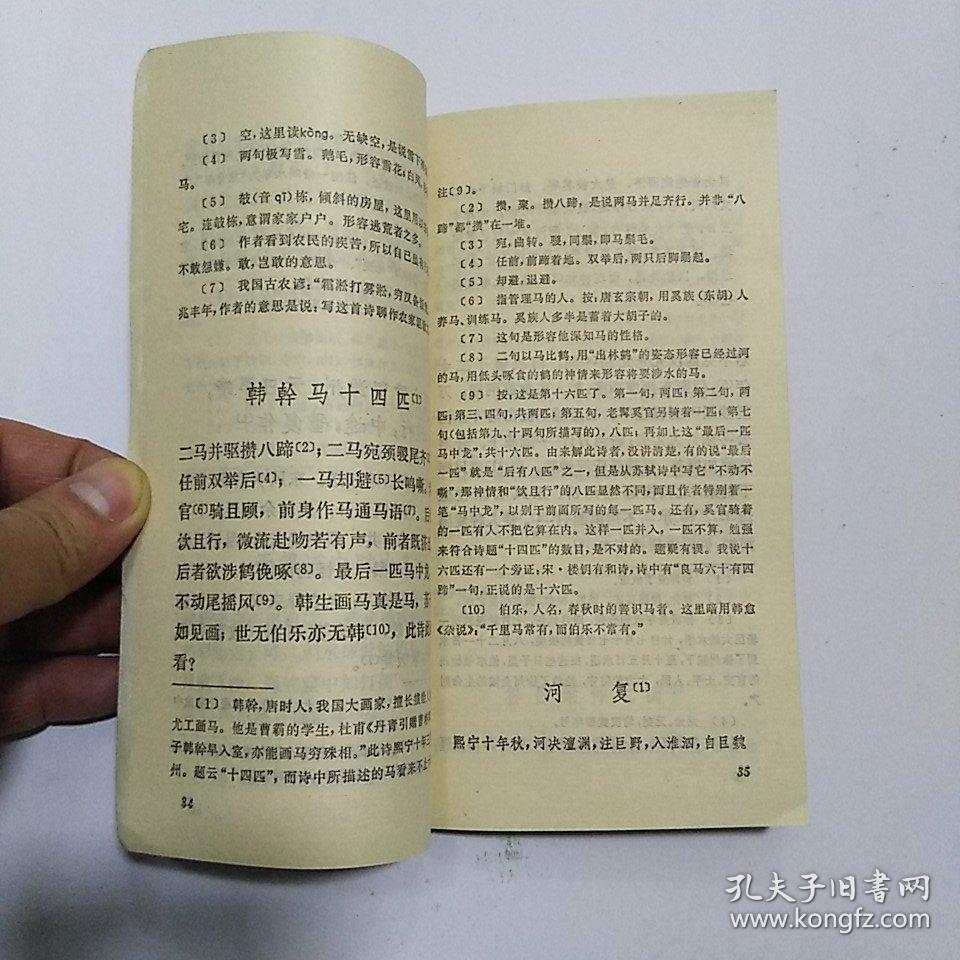 〔3〕 空,这里读kòng。无缺空,是说雪下
〔4〕 两句极写雪。鹅毛,形容雪花;白凤,
马。
〔5〕 攲(音qī)栋,倾斜的房屋,这里用以
宅。连攲栋,意谓家家户户。形容逃荒者之多。
〔6〕 作者看到农民的疾苦,所以自己虽
不敢怨嫌。敢,岂敢的意思。
〔7〕 我国古农谚:“霜凇打雾凇,穷汉备
兆丰年,作者的意思是说:写这首诗聊作农家
韩幹马十四匹〔1〕
二马并驱攒八蹄〔2〕;二马宛颈騣尾齐
任前双举后〔4〕;一马却避〔5〕长鸣嘶。
官〔6〕骑且顾,前身作马通马语〔7〕。后
饮且行,微流赴吻若有声,前者既济
后者欲涉鹤俛啄〔8〕。最后一匹马中龙
不动尾摇风〔9〕。韩生画马真是马,苏
如见画;世无伯乐亦无韩〔10〕,此诗此
看?
〔1〕 韩幹,唐时人,我国大画家,擅长描绘人
尤工画马。他是曹霸的学生,杜甫《丹青引赠曹
子韩幹早入室,亦能画马穷殊相。”此诗熙宁十年三
州。题云“十四匹”,而诗中所描述的马看来不止
34
注〔9〕。
〔2〕 攒,聚。攒八蹄,是说两马并足齐行。并非“八
蹄”都“攒”在一堆。
〔3〕 宛,曲转。騣,同鬃,即马鬃毛。
〔4〕 任前,前蹄着地。双举后,两只后脚踢起。
〔5〕 却避,退避。
〔6〕 指管理马的人。按:唐玄宗朝,用奚族(东胡)人
养马、训练马。奚族人多半是蓄着大胡子的。
〔7〕 这句是形容他深知马的性格。
〔8〕 二句以马比鹤,用“出林鹤”的姿态形容已经过河
的马,用低头啄食的鹤的神情来形容将要涉水的马。
〔9〕 按:这是第十六匹了。第一句,两匹;第二句,两
匹;第三、四句,共两匹;第五句,老髯奚官另骑着一匹;第七
句(包括第九、十两句所描写的),八匹;再加上这“最后一
匹马中龙”,共十六匹。由来解此诗者,没讲清楚,有的说“最后
一匹”就是“后有八匹”之一,但是从苏轼诗中写它“不动不
嘶”,那神情和“饮且行”的八匹显然不同,而且作者特别着一
笔“马中龙”,以别于前面所写的每一匹马。还有,奚官骑着
的一匹有人不把它算在内。这样一匹并入,一匹不算,勉强
来符合诗题“十四匹”的数目,是不对的。题疑有误。我说十
六匹还有一个旁证:宋·楼钥有和诗,诗中有“良马六十有四
蹄”一句,正说的是十六匹。
〔10〕 伯乐,人名,春秋时的善识马者。这里暗用韩愈
《杂说》:“千里马常有,而伯乐不常有。”
河 复〔1〕
熙宁十年秋,河决澶渊,注巨野,入淮泗,自巨魏
35
孔夫子旧书网
www.kongfz.com